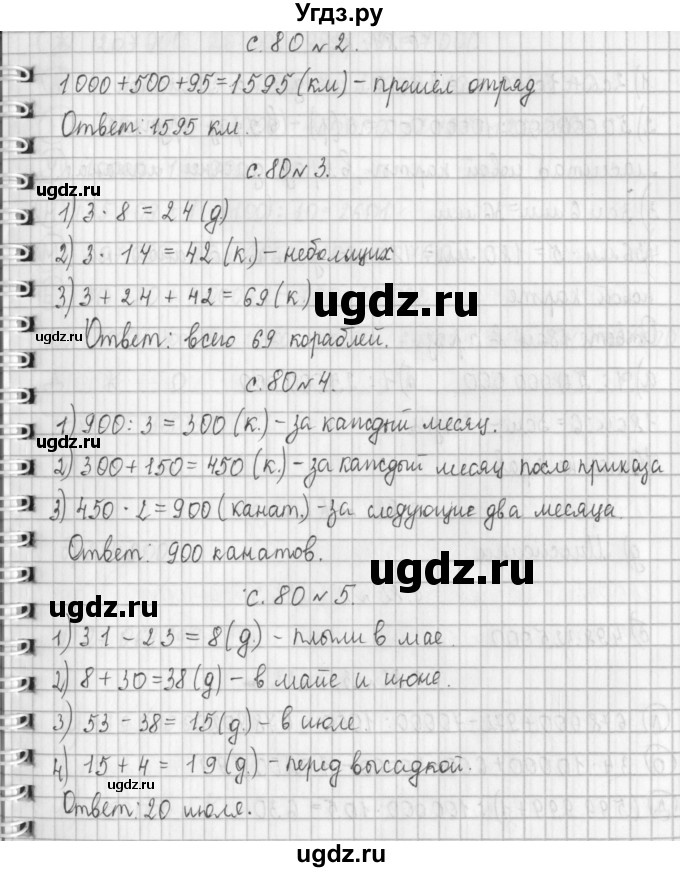 Угдз.ру
с. 80 № 2.
1000+500+95=1595 (км) - прошёл отряд
Ответ: 1595 км.
с. 80 № 3.
ugdz.ru
1) 3 · 8 = 24 (д)
ugdz.ru
2) 3 · 14 = 42 (к.) - неболищих
3) 3 + 24 + 42 = 69 (к.)
ugdz.ru
Ответ: всего 69 кораблей.
с. 80 № 4.
1) 900 : 3 = 300 (к.) - за каждый месяц.
ugdz.ru
2) 300 + 150 = 450 (к.) - за каждый месяц после приказа
3) 450 · 2 = 900 (канат.) - за следующие два месяца.
Ответ: 900 канатов.
ugdz.ru
с. 80 № 5.
ugdz.ru
1) 31 - 23 = 8 (д.) - плыли в мае.
2) 8 + 30 = 38 (д) - в майе и июне.
3) 53 - 38 = 15 (д.) - в июле
ugdz.ru
4) 15 + 4 = 19 (д.) - перед высадкой.
ugdz.ru
Ответ: 20 июля.
ugdz.ru